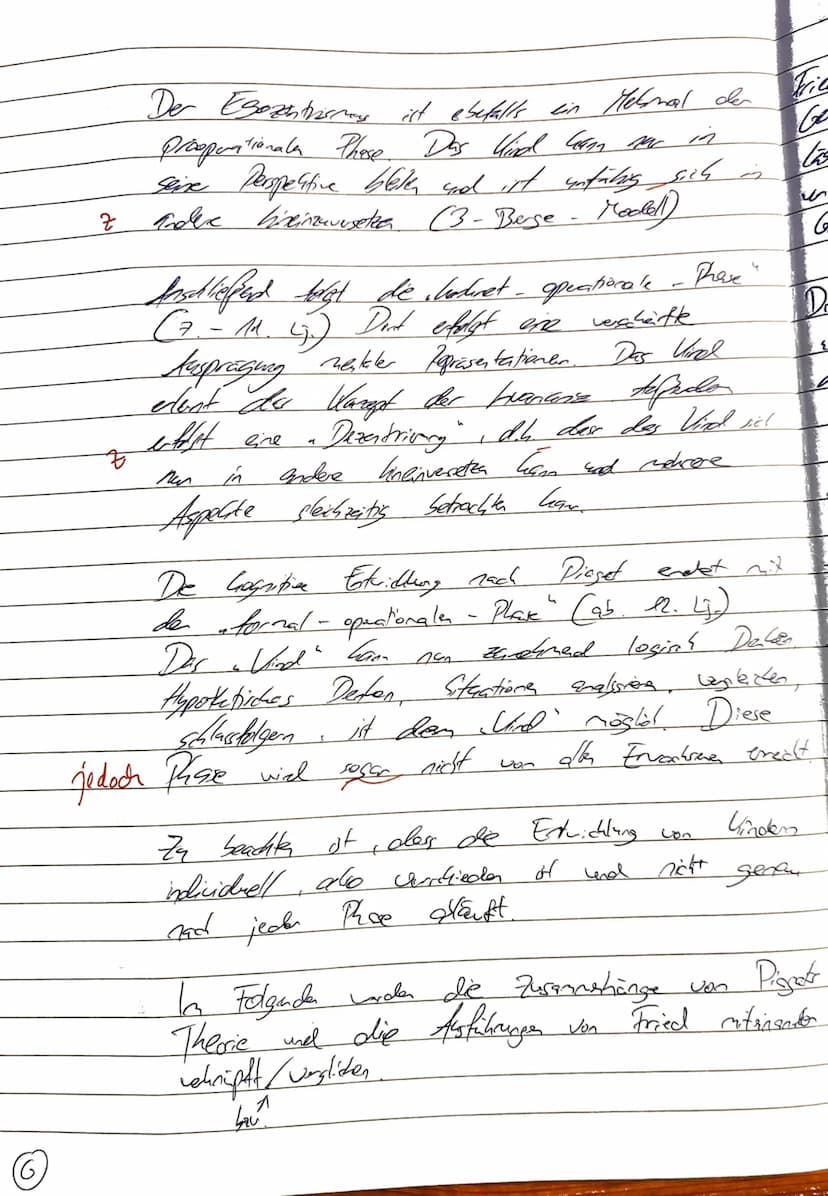 Der Egozentrismus ist ebefalls ein Merkmal der
präoperationalen Phase. Das Kind kann nur in
seine Perspektive bleiben und ist unfähig sich in
z andere hineinzuversetzen (3-Berge-Modell)
Anschließend folgt die „konkret-operationale-Phase"
(7.-11. Lj.) Dort erfolgt eine verschärfte
Ausprägung mentaler Repräsentationen. Das Kind
erlernt das Konzept der Außerdem
erfolgt eine „Dezentrierung", d.h. dass das Kind sich
z nun in andere hineinversetzen kann und mehrere
Aspekte gleichzeitig betrachten kann.
Die kognitive Entwicklung nach Piaget endet mit
der „formal-operationalen-Phase" (ab. 12. Lj.)
Das „Kind" kann nun zunehmend logisch Denken
Hypothetisches Denken, Situationen analysieren, vergleichen,
schlussfolgern, ist dem „Kind" möglich. Diese
jedoch Phase wird sogar nicht von allen Erwachsenen erreicht.
Zu beachten ist, dass die Entwicklung von Kindern
individuell, also verschieden ist und nicht genau
nach jeder Phase abläuft.
Im Folgenden werden die Zusammenhänge von Piagets
Theorie und die Ausführungen von Fried miteinander
verknüpft/verglichen.
bzw.
6